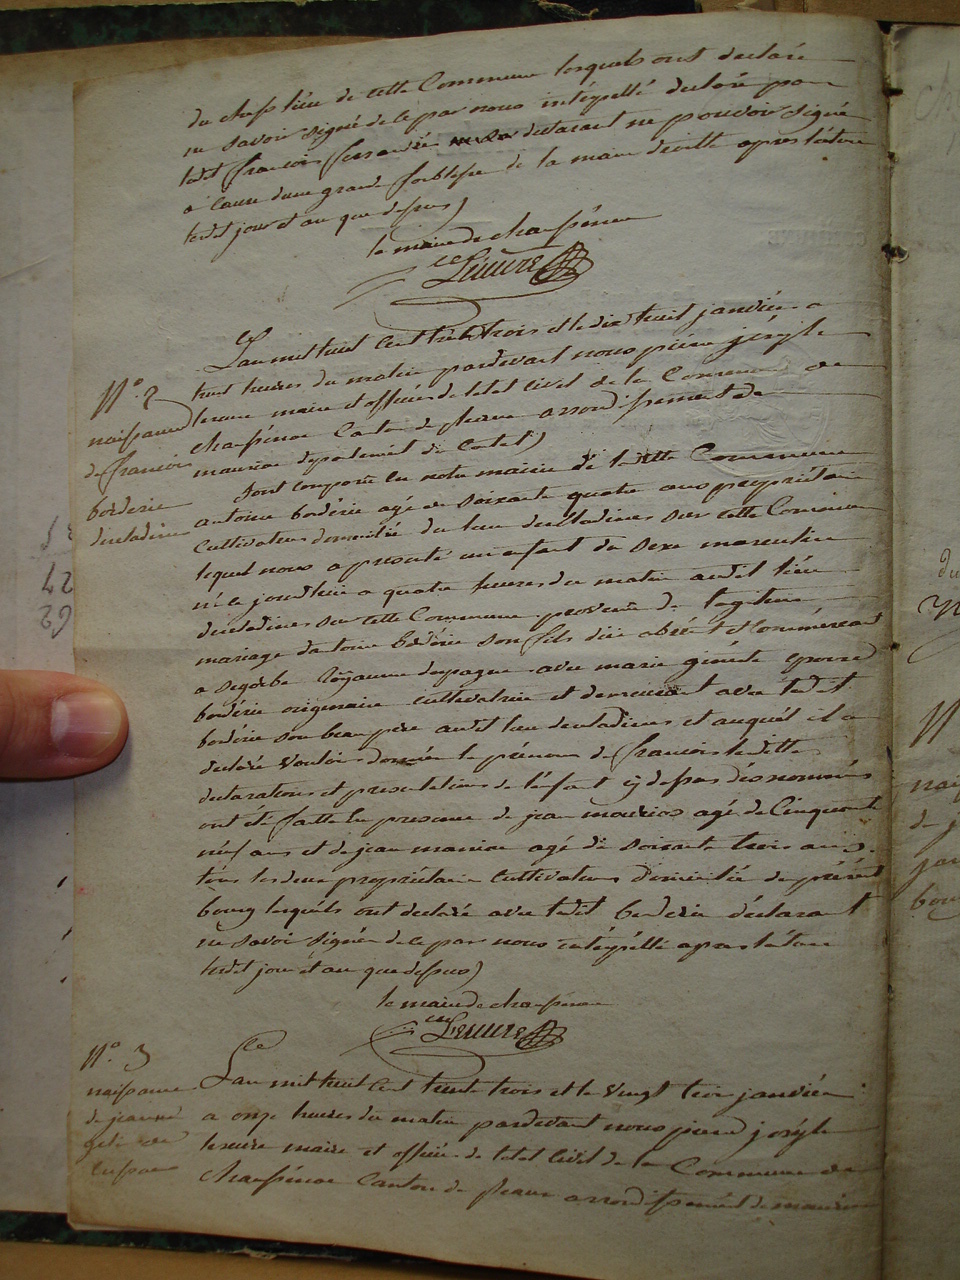 du chef lieu de cette Commune lesquels ont declaré
ne savoir signé de ce par nous intérpellé declaré par
ledit françois declarant ne pouvoir signé
a cause dune grande foiblesse de la main droitte apres lecture
ledit jour et an que dessus)
le maire de
Lesuure
N.º 2
naissance
de francois
borderie
Lan mil huit cent trente trois et le dix huit janvier a
huit heures du matin pardevant nous pierre joseph
maire et officier de letat civil de la Commune de
Canton de pleaux arrondissement de
mauriac departement du Cantal)
Sont comparu en notre mairie de la ditte Commune
antoine bordérie agé de soixante quatre ans propriétaire
Cultivateur domicilié du lieu sur cette Commune
lequel nous a présenté un enfant du sexe masculin
né ce jourdhuie a quatre heures du matin audit lieu
sur cette Commune provenu de legitime
mariage dantoine bordérie son fils absent et Commérceant
a Royaume despagne avec marie epouse
bordérie originaire cultivatrice et demeurant avec ledit
borderie son beau père audit lieu et auquél il a
declaré vouloir donner le prénom de francois lesdittes
declarations et presentations de lenfant cy dessus dénommés
ont été faitte en presence de jean agé de Cinquante
néuf ans et de jean agé de soixante trois ans
tous les deux propriétaire Cultivateurs domicilié du présént
bourg lesquéls ont declaré avec ledit borderie déclarant
ne savoir signér de ce par nous intérpéllé apres lécture
ledit jour ét an que dessus)
le maire de
Lesuure
N.º 3
naissance
de jeanne
Lan mil huit Cent trente trois et le vingt trois janviér
a onze heures du matin pardevant nous pierre joséph
maire et officier de letat Civil de la Commune de
Canton de pleaux arrondissemént de mauriac